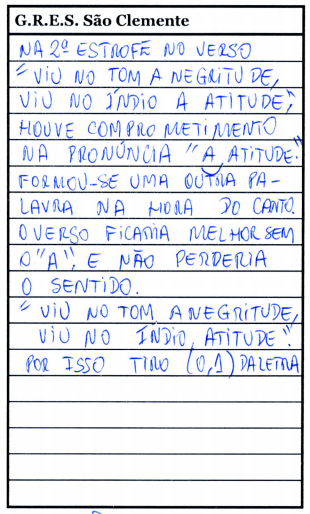 G.R.E.S. São Clemente
NA 2ª ESTROFE NO VERSO
"VIU NO TOM A NEGRITUDE,
VIU NO ÍNDIO A ATITUDE",
HOUVE COMPROMETIMENTO
NA PRONÚNCIA "A ATITUDE."
FORMOU-SE UMA OUTRA PA-
LAVRA NA HORA DO CANTO.
O VERSO FICARIA MELHOR SEM
O "A", E NÃO PERDERIA
O SENTIDO.
"VIU NO TOM A NEGRITUDE,
VIU NO ÍNDIO, ATITUDE".
POR ISSO TIRO (0,1) DA LETRA